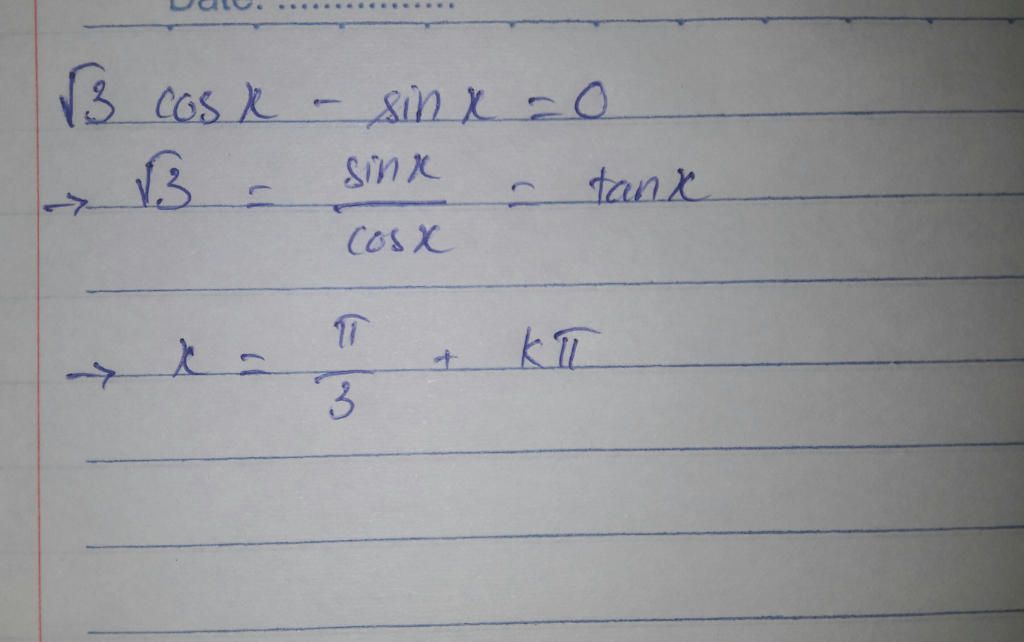 Date: ................
√3 cos x - sin x = 0
→ √3 = sin x / cos x = tan x
→ x = π / 3 + kπ